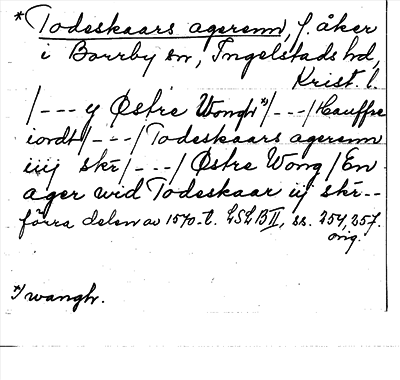 * Todeskaars agerenn, f. åker
i Borrby sn, Ingelstads hd,
Krist. l.
/---y Østre Wongh*)/---/Hauffre
iordt/---/Todeskaars agerenn
iiij skr/---/Østre Wong/En
ager wid Todeskaar iij skr--
förra delen av 1570-t. LSLB II, ss. 254, 257.
orig.
*) wangh.